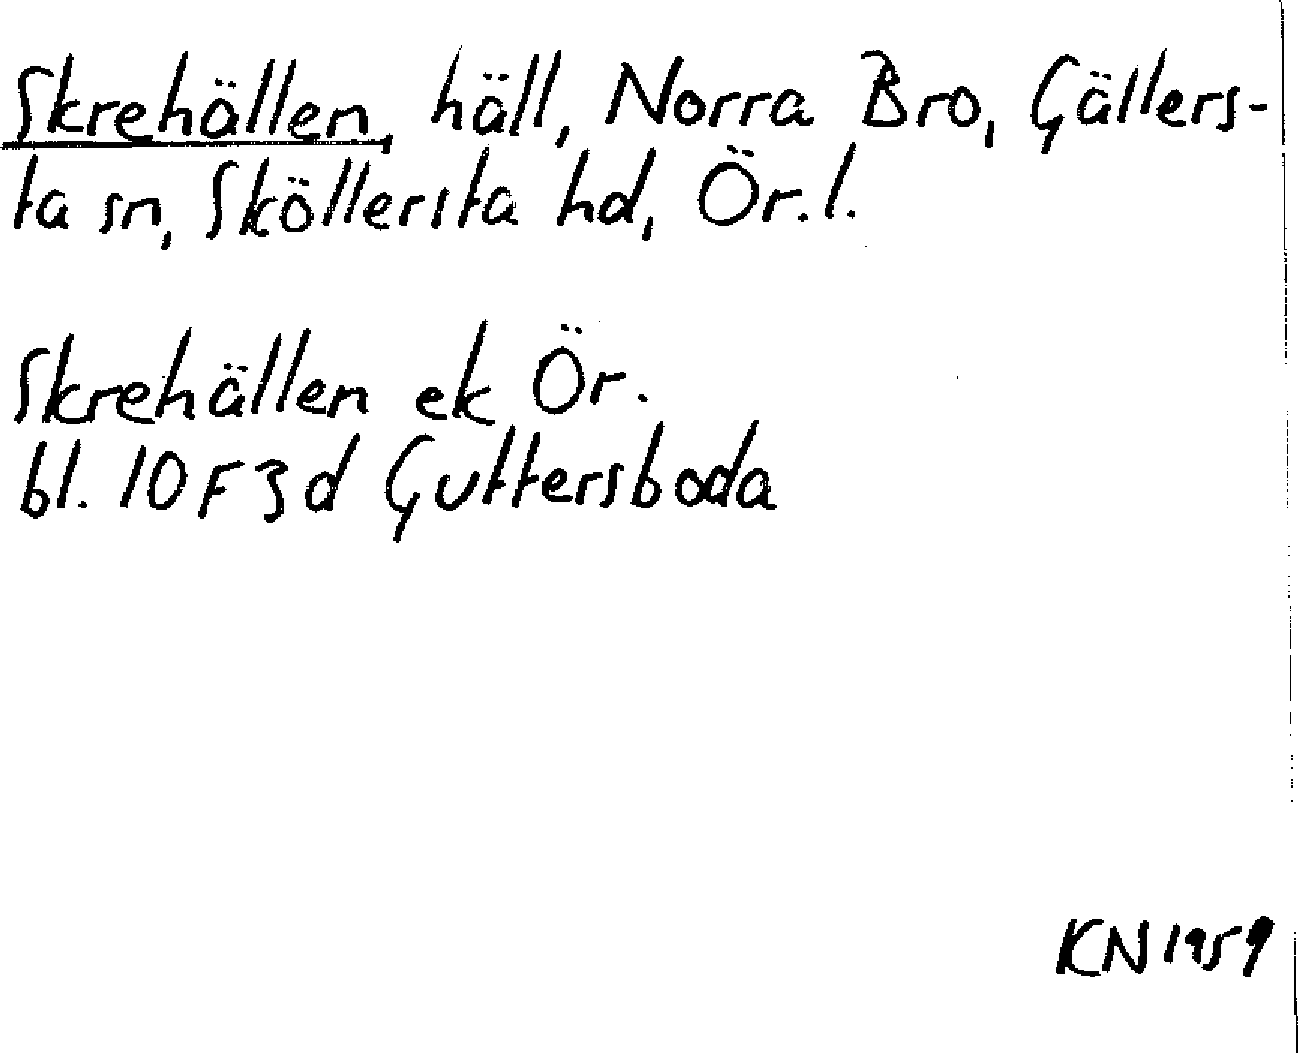 Skrehällen, häll, Norra Bro, Gällers-
ta sn, Sköllersta hd, Ör. l.
Skrehällen ek Ör.
bl. 10F3d Guttersboda
KN 1959